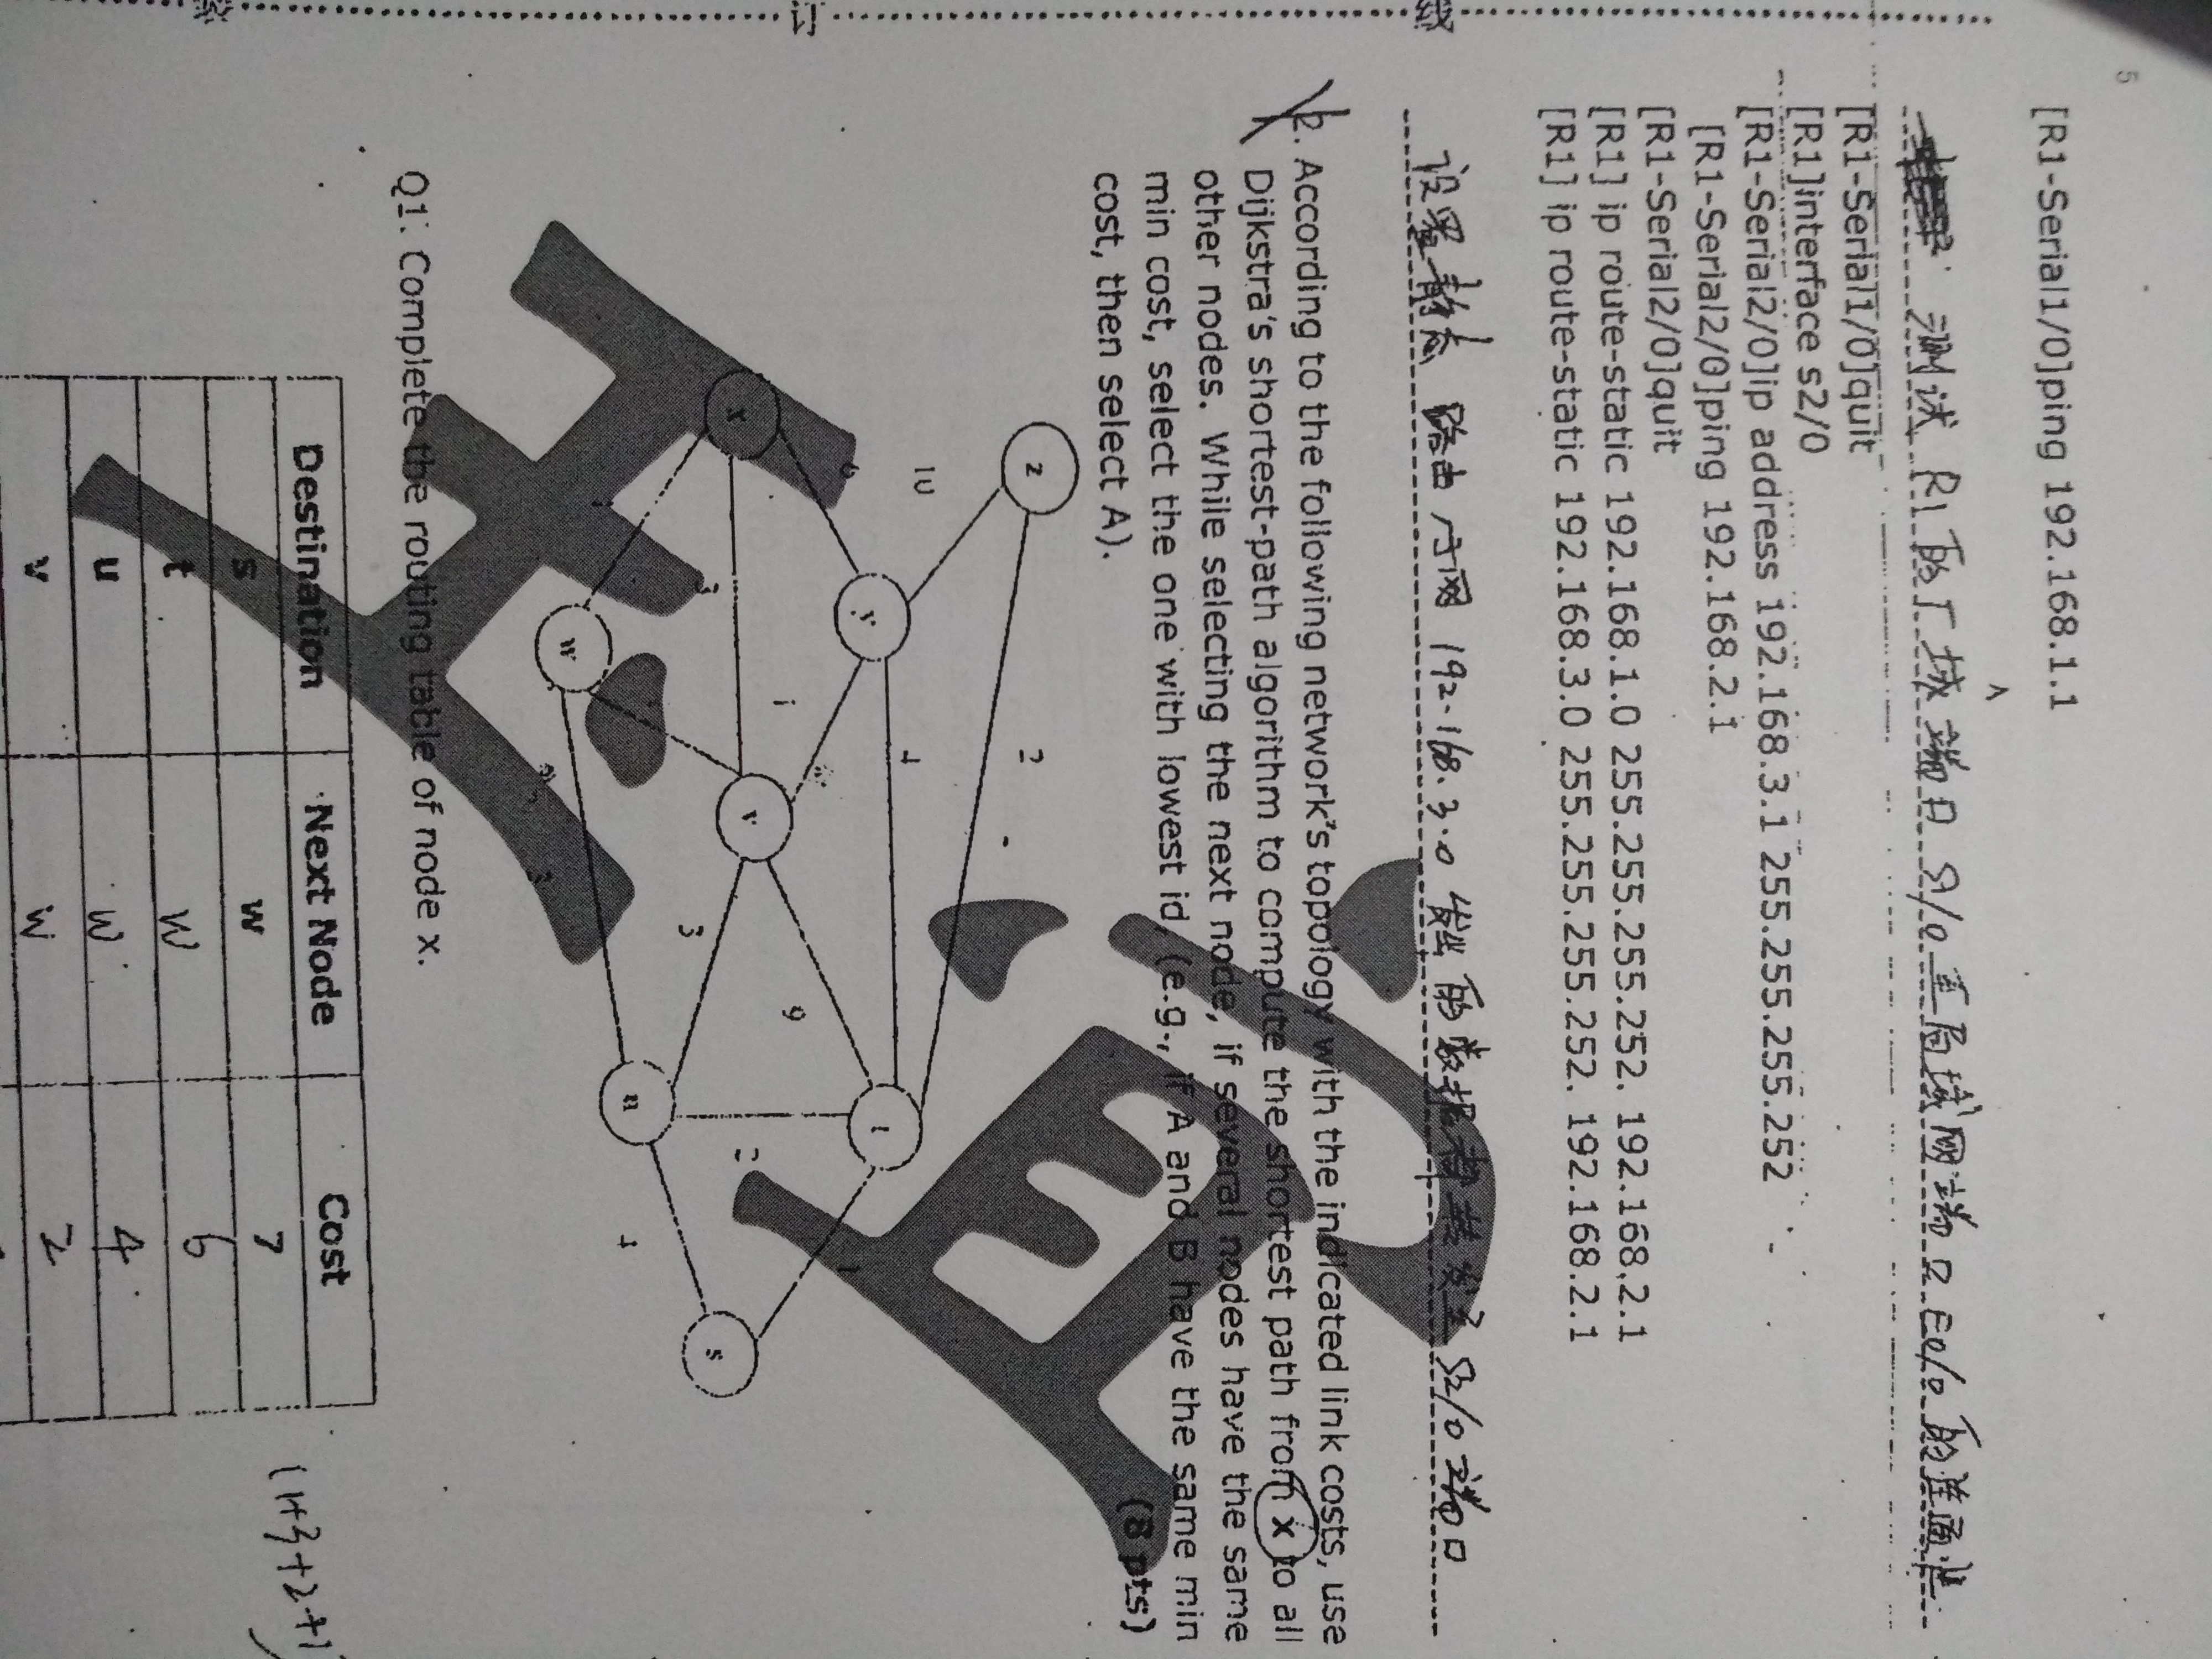 5
[R1-Serial1/0]ping 192.168.1.1
测试 R1的广域端口 S1/0 至局域网端口 E0/0 的连通性
[R1-Serial1/0]quit
[R1]interface s2/0
[R1-Serial2/0]ip address 192.168.3.1 255.255.255.252
[R1-Serial2/0]ping 192.168.2.1
[R1-Serial2/0]quit
[R1] ip route-static 192.168.1.0 255.255.255.252. 192.168.2.1
[R1] ip route-static 192.168.3.0 255.255.255.252. 192.168.2.1
设置静态 路由 子网 192.168.3.0 发出的数据都转发至 S2/0 端口
2. According to the following network's topology with the indicated link costs, use
Dijkstra's shortest-path algorithm to compute the shortest path from x to all
other nodes. While selecting the next node, if several nodes have the same
min cost, select the one with lowest id, (e.g., if A and B have the same min
cost, then select A).
(8 pts)
z
2
10
4
y
t
6
1
1
9
x
v
2
s
3
3
u
1
4
w
3
Q1. Complete the routing table of node x.
Destination Next Node Cost
s w 7 (1+3+2+1)
t w 6
u w 4
v w 2